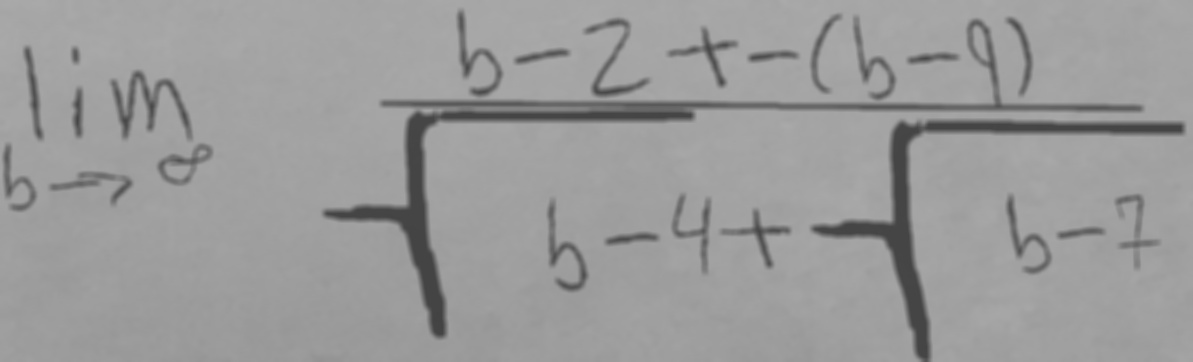 \lim_{b \to \infty} \frac{b-2+-(b-9)}{\sqrt{b-4}+\sqrt{b-7}}